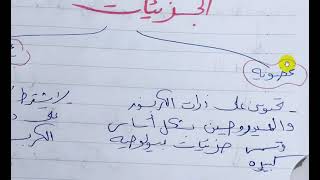 الجزيئات
عضوية
- تحتوي على ذرات الكربون
والهيدروجين بشكل أساسي
وتسمى جزيئات بيولوجية
كبيرة
لا يشترط
على ذ
الكربو